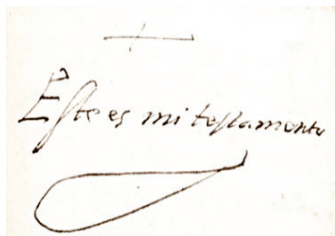 Este es mi testamento